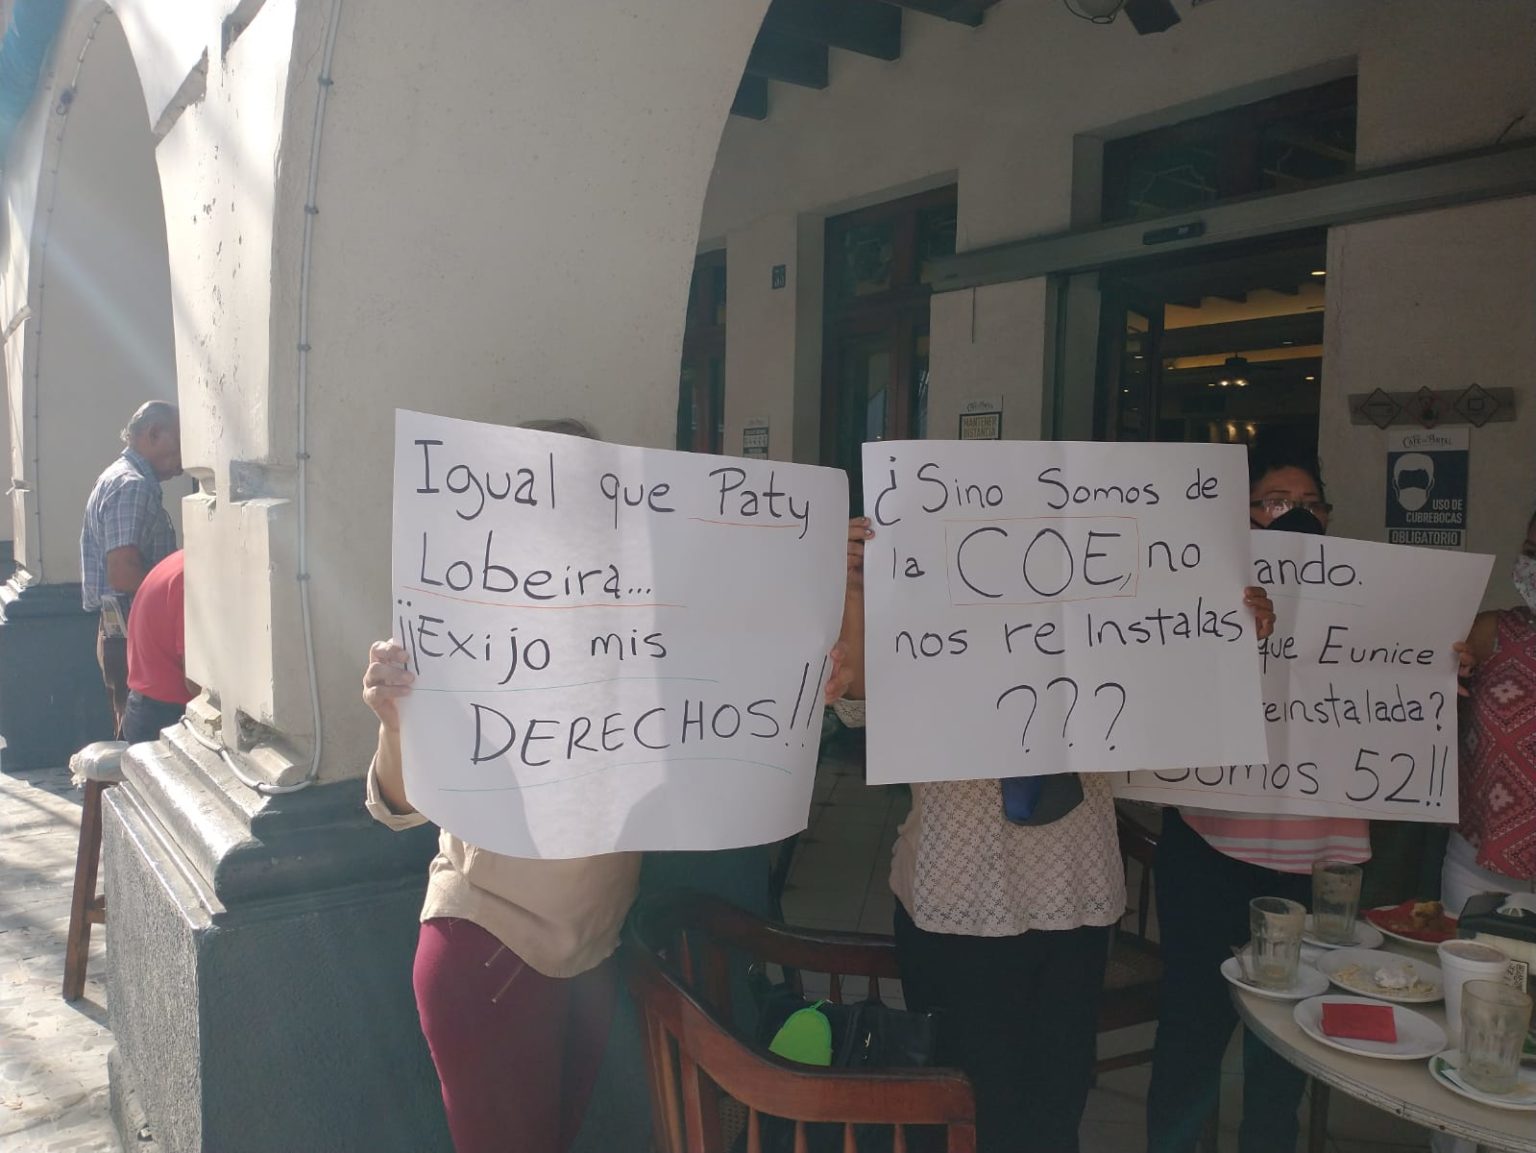 Igual que Paty
Lobeira...
¡¡Exijo mis
DERECHOS!!
¿Sino Somos de
la COE, no
nos re Instalas
???
ando.
que Eunice
reinstalada?
Somos 52!!
MANTENER
DISTANCIA
USO DE
CUBREBOCAS
OBLIGATORIO